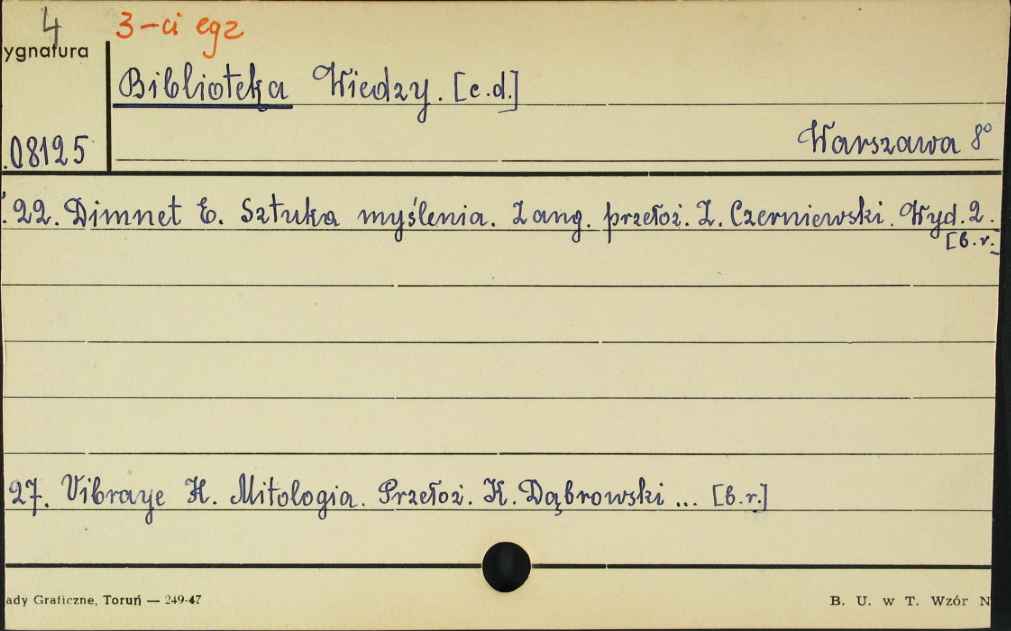 4 3-ci egz
ygnatura
Biblioteka Wiedzy. [c.d.]
.08125 Warszawa 8°
22. Dimnet E. Sztuka myślenia. Z ang. przełoż. Z. Czerniewski. Wyd. 2.
[b.r.
27. Vibraye H. Mitologia. Przełoż. K. Dąbrowski ... [b.r.]
ady Graficzne, Toruń — 249-47 B. U. w T. Wzór N